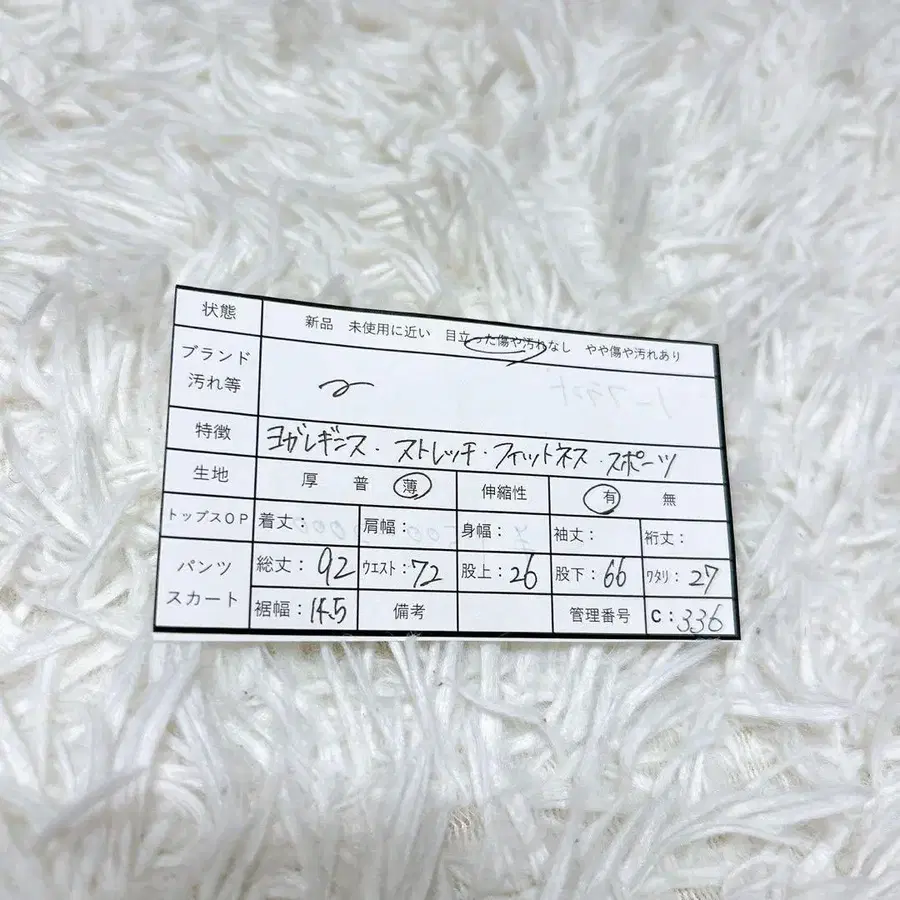 状態 新品 未使用に近い 目立った傷や汚れなし やや傷や汚れあり
ブランド
汚れ等
特徴 ヨガレギンス・ストレッチ・フィットネス・スポーツ
生地 厚 普 薄 伸縮性 有 無
トップスOP 着丈: 肩幅: 身幅: 袖丈: 裄丈:
パンツ 総丈:92 ウエスト:72 股上:26 股下:66 ワタリ:27
スカート 裾幅:14.5 備考 管理番号 C:336